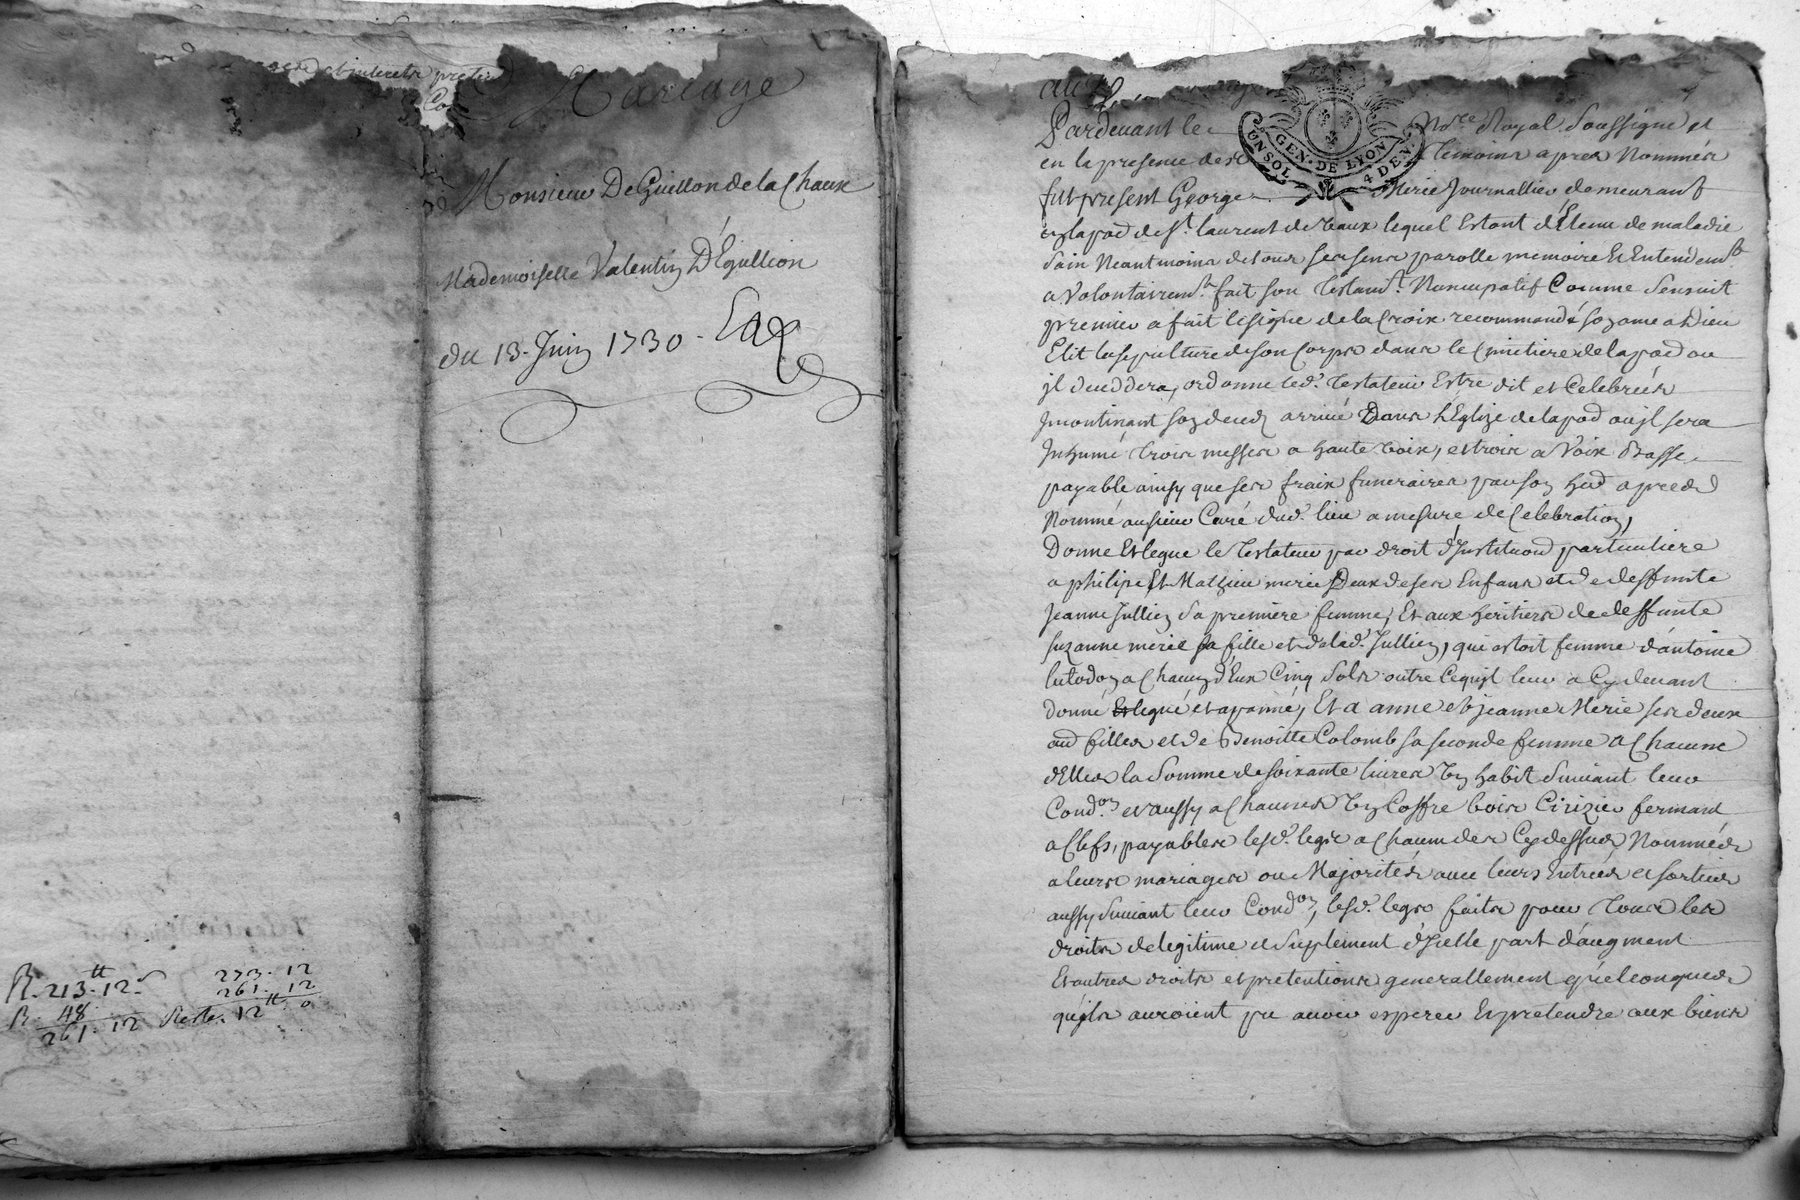 et interets
Mariage
Monsieur De Guillon de la Chaux
Mademoiselle Valentin D'Egullion
du 13. Juin 1730.
R. 213. 12 s
R. 48
261. 12
273. 12
261. 12
Reste. 12 tt 0
Pardevant le Nore Royal Soussigné et
en la presence des Temoins apres Nommés
fut present George Merie Journallier demeurant
en la pad de St. laurent de Vaux lequel Estant détenu de maladie
Sain Neantmoins de tous ses sens parolle memoire Et Entendemt
a Volontairemt. fait son Testamt. Nuncupatif Comme Sensuit
premier a fait le signe de la Croix recommandé son ame a Dieu
Elit la sepulture de son Corps dans le Cimitiere de la pad ou
jl deceddera, ordonne led. Testateur Estre dit et Celebrées
Jncontinant son deced arrivé Dans L'Eglize de la pad ou jl sera
Jnhumé trois messes a haute voix, et trois a Voix Basse
payable ainsy que ses fraix funeraires par son hed apres
Nommé au sieur Curé dud. lieu a mesure de Celebration,
Donne Et legue le Testateur par droit d'Jnstituond particuliere
a philipe Et Mathieu merie Deux de ses Enfans et de deffunte
Jeanne Jullien sa premiere femme, Et aux heritiers de deffunte
suzanne merie sa fille et de lad. Jullien, qui estoit femme d'antoine
a Chacun d'Eux Cinq Sols outre Cequjl leur a Cydevant
donné Et legué et apanné, Et a anne et jeanne Merie ses deux
aud filles et de Benoitte Colomb sa seconde femme a Chacune
d'Elles la Somme de soixante livres Un habit Suivant leur
Condon. et aussy a Chacunes Un Coffre bois Cirizier fermant
a Clefs, payables lesd. legs a Chacun des Cydessus Nommés
a leurs mariages ou Majorités avec leurs Entrées et sorties
aussy Suivant leur Condon, lesd. legs faits pour Tous les
droits de legitime et Suplement d'Jcelle part d'augment
Et autres droits et pretentions generallement quelconques
qu'jls auroient pu avoir esperer Et pretendre aux biens
GEN. DE LYON
UN SOL
4 DEN.